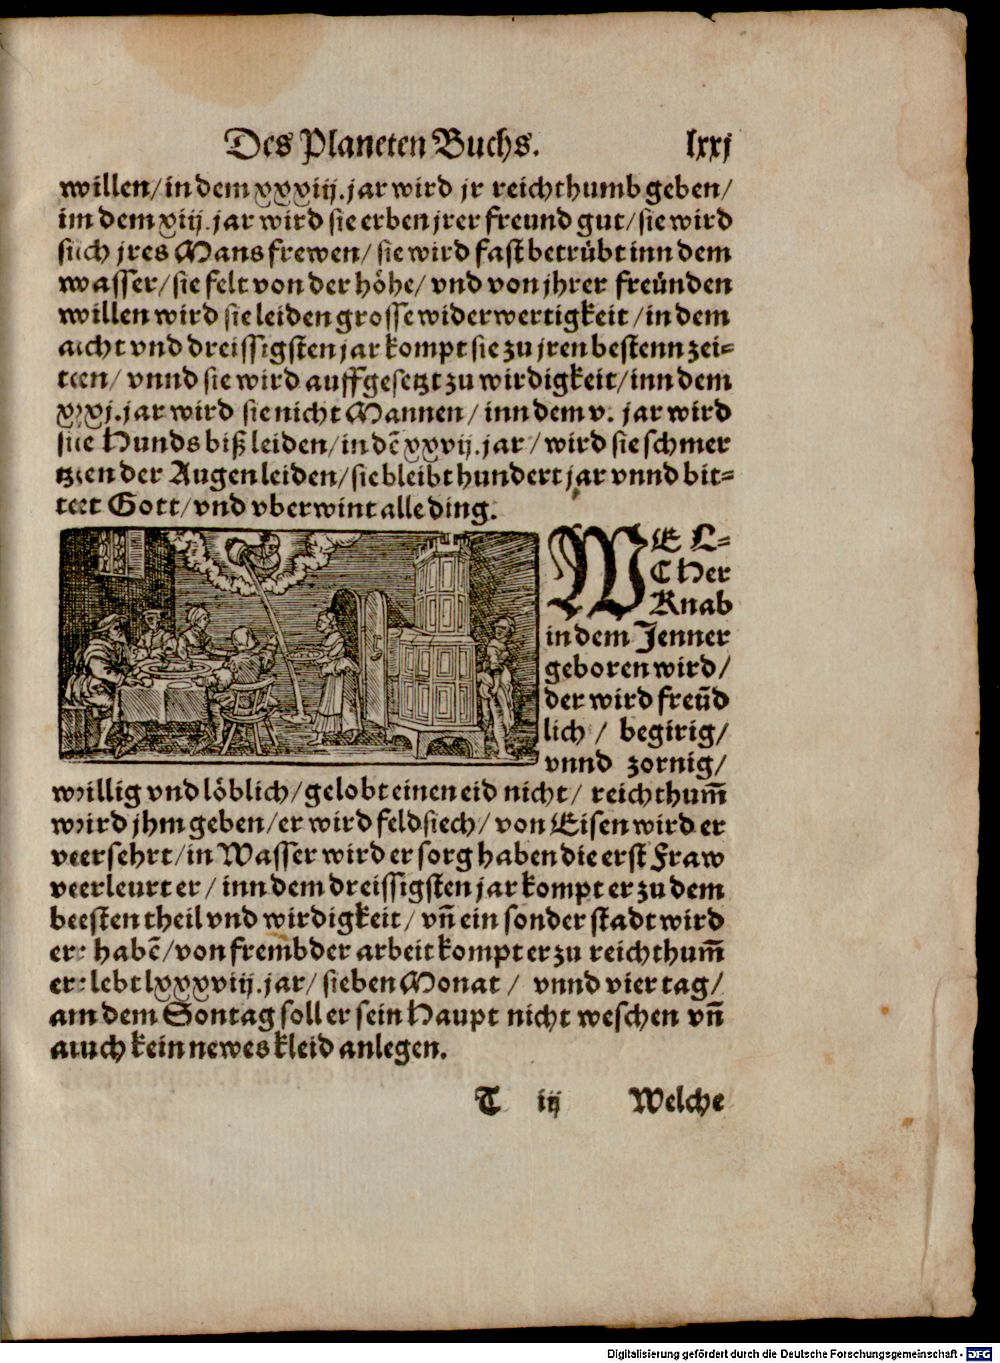 Des Planeten Buchs. lxxj
willen/in dem xxxiij.jar wird jr reichthumb geben/
im dem xiij.jar wird sie erben jrer freund gut/sie wird
sich jres Mans frewen/ sie wird fast betrübt inn dem
wasser/sie felt von der höhe/ vnd von jhrer freünden
willen wird sie leiden grosse widerwertigkeit/in dem
acht vnd dreissigsten jar kompt sie zu jren bestenn zei-
ten/ vnnd sie wird auffgesetzt zu wirdigkeit/inn dem
xxj.jar wird sie nicht Mannen/ inn dem v. jar wird
sie Hunds biß leiden/in dē xxvij.jar/ wird sie schmer
tzen der Augen leiden/sie bleibt hundert jar vnnd bit-
tet Gott/vnd vberwint alle ding.
WEL-
CHer
Knab
in dem Jenner
geboren wird/
der wird freūd
lich/ begirig/
vnnd zornig/
willig vnd löblich/gelobt einen eid nicht/ reichthum̄
wird jhm geben/er wird feldsiech/von Eisen wird er
versehrt/in Wasser wird er sorg haben die erst Fraw
verleurt er/ inn dem dreissigsten jar kompt er zu dem
besten theil vnd wirdigkeit/ vn̄ ein sonder stadt wird
er habē/von frembder arbeit kompt er zu reichthum̄
er lebt lxxxviij.jar/ sieben Monat/ vnnd vier tag/
am dem Sontag soll er sein Haupt nicht weschen vn̄
auch kein newes kleid anlegen.
T iij Welche
Digitalisierung gefördert durch die Deutsche Forschungsgemeinschaft - DFG